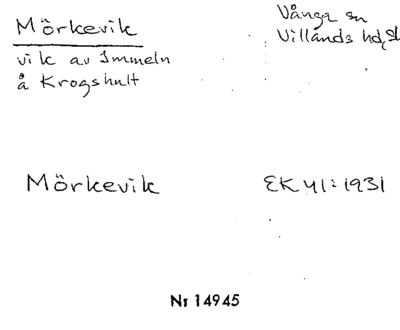 Mörkevik
vik av Immeln
å Krogshult
Vånga sn
Villands hd, Sk
Mörkevik
EK 41:1931
Nr 14945